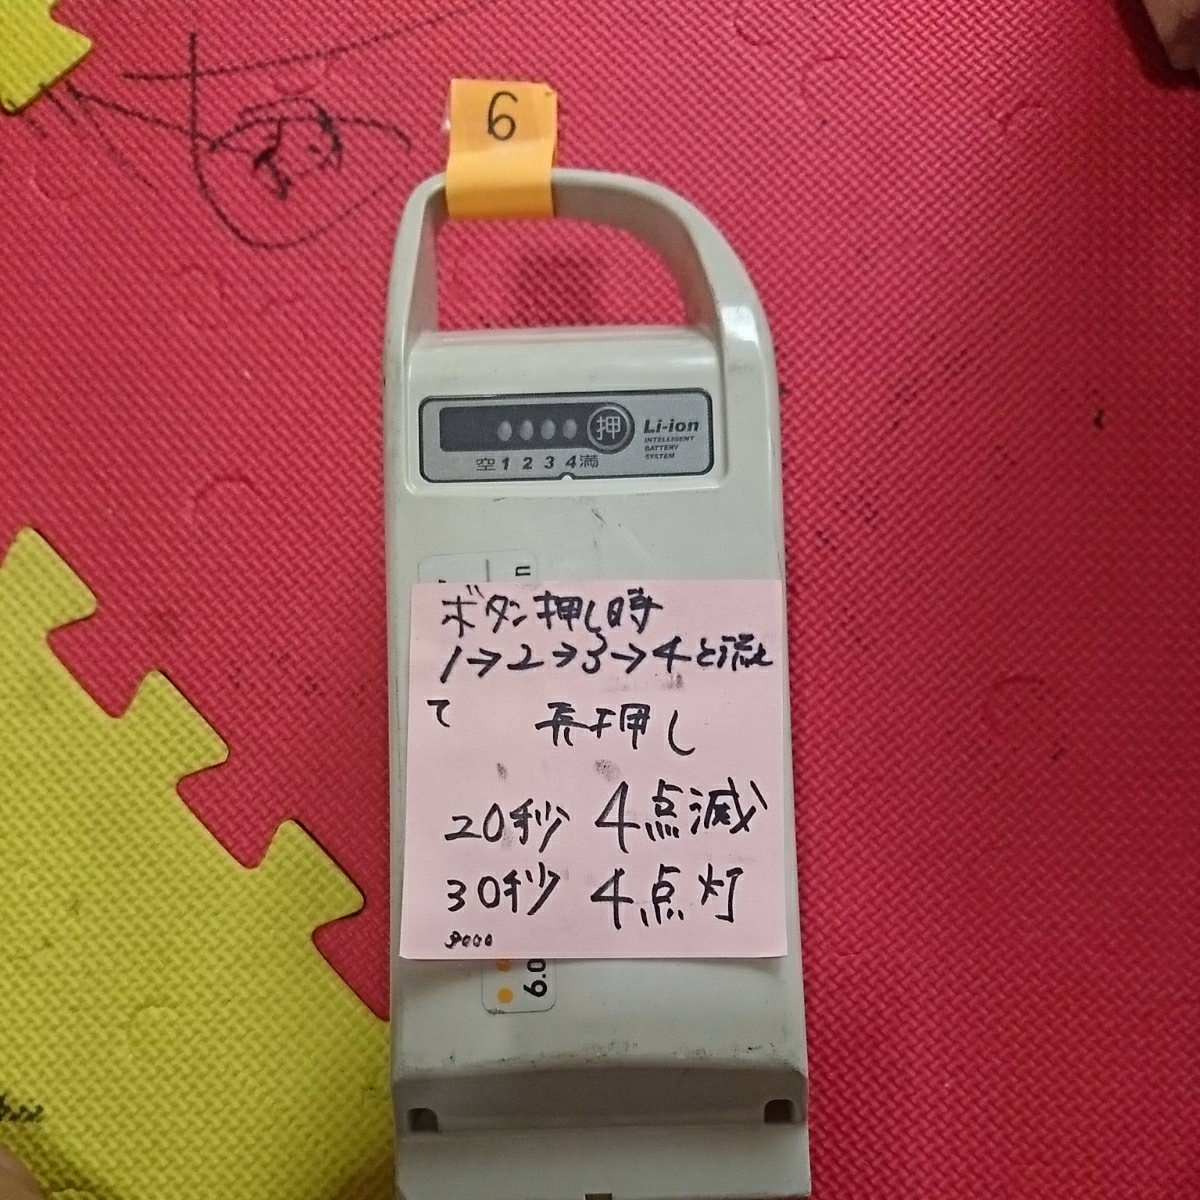 6
押
Li-ion
INTELLIGENT
BATTERY
SYSTEM
空 1 2 3 4 満
ボタン押し時
1→2→3→4と流れ
て 長押し
20秒 4点滅
30秒 4点灯
9000
6.0